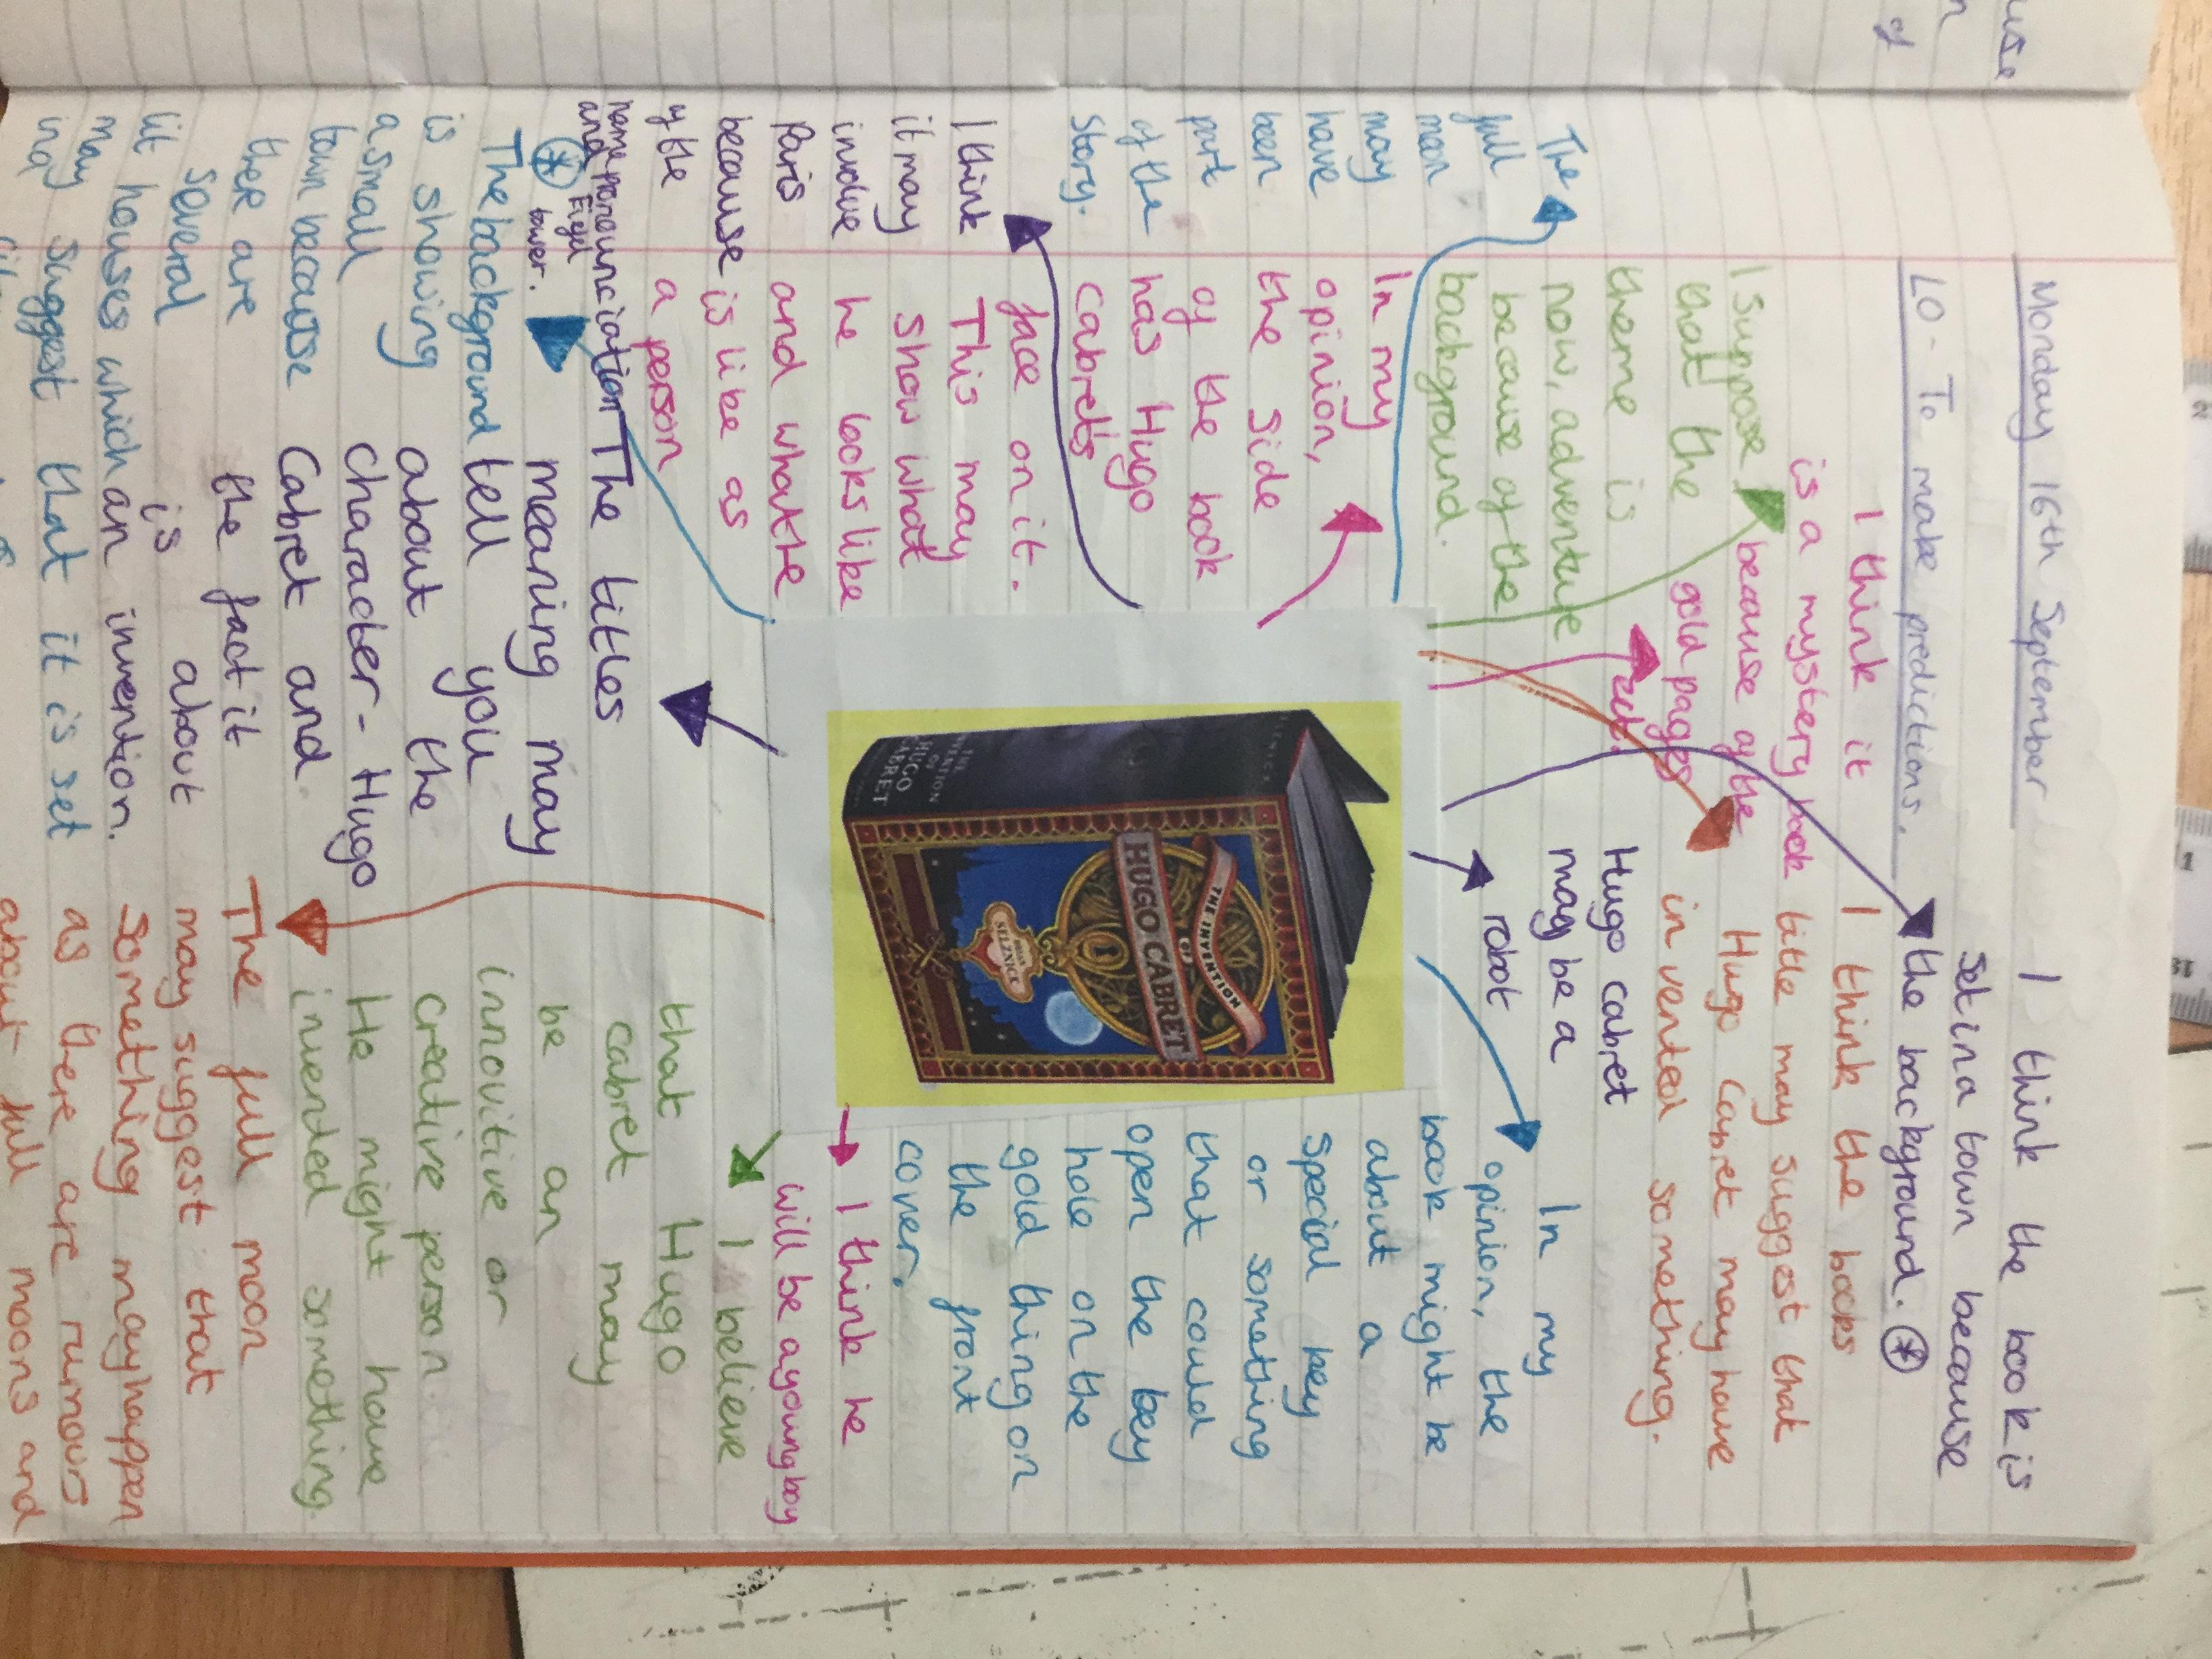 use
n
of
Monday 16th September
LO - To make predictions.
I think the book is
set in a town because
the background. *
I think it
is a mystery book
because of the
gold pages
I think the books
title may suggest that
Hugo Cabret may have
invented something.
I suppose
that the
theme is
now, adventure
because of the
background.
Hugo cabret
may be a
robot
The
full
moon
may
have
been
part
of the
story.
In my
opinion,
the side
of the book
has Hugo
Cabret's
face on it.
This may
show what
he looks like
and what he
is like as
a person
In my
opinion, the
book might be
about a
special key
or something
that could
open the key
hole on the
gold thing on
the front
cover.
I think
it may
involve
Paris
because
of the
name pronounciation
and Eiffel
tower.
THE INVENTION
OF
HUGO CABRET
BRIAN
SELZNICK
THE
INVENTION
OF
HUGO
CABRET
SELZNICK
I think he
will be a young boy
I believe
that Hugo
cabret may
be an
innovitive or
creative person.
He might have
invended something.
The titles
meaning may
tell you
about the
character - Hugo
Cabret and
the fact it
is about
an invention.
*
The background
is showing
a small
town because
there are
several
lit houses which
may suggest that it is set
The full moon
may suggest that
something may happen
as there are rumours
about full moons and